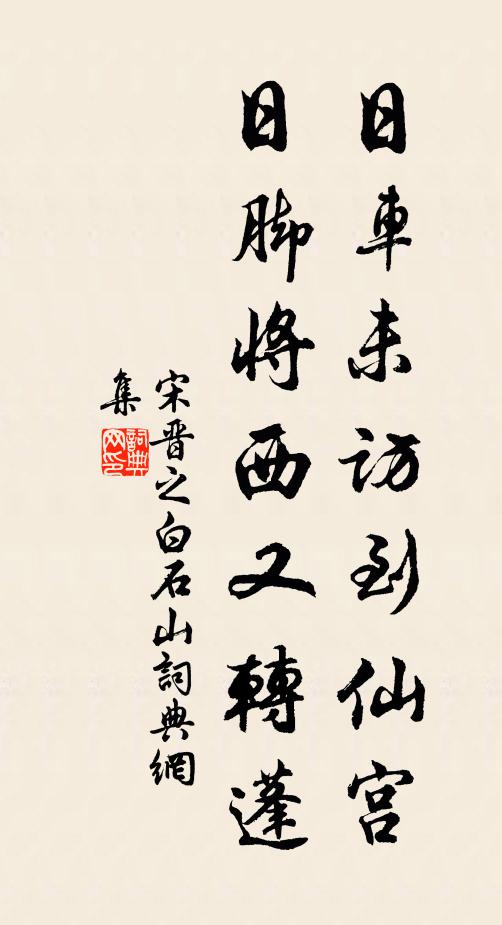 日車未訪到仙宮
日脚將西又轉蓬
宋晋之白石山詞典網
集
詞典網印